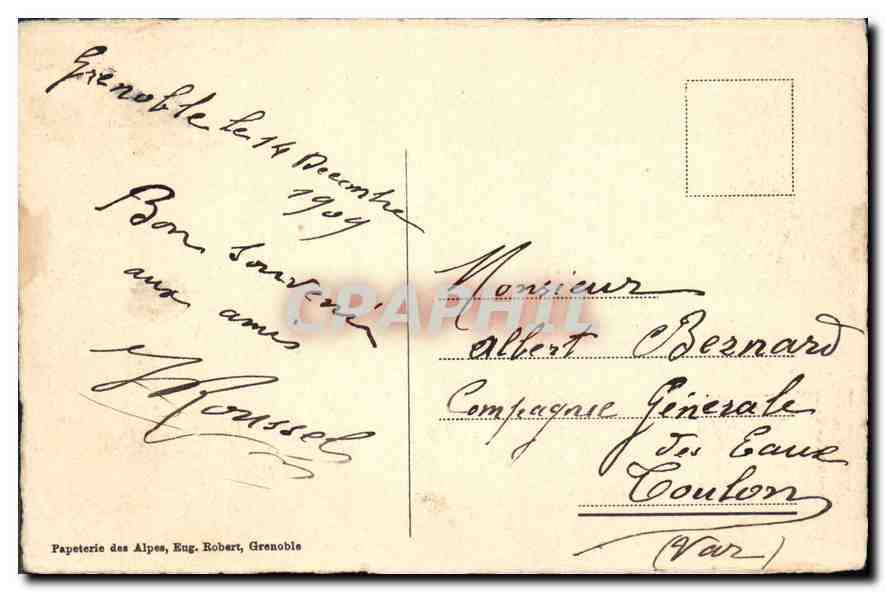 Grenoble le 14 Decembre
1909
Bon souvenir
aux amis
Roussel
Monsieur
Albert Bernard
Compagnie Génerale
des Eaux
Toulon
(Var)
CPAPHIL
Papeterie des Alpes, Eug. Robert, Grenoble